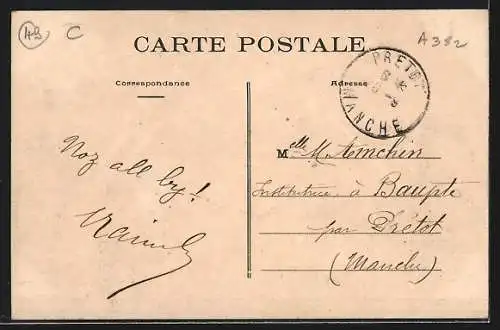 43 C
A382
CARTE POSTALE
Correspondance
Adresse
PRETOT
MANCHE
Noz all by!
Melle M.
Institutrice à Baupte
par Prétot
(Manche)